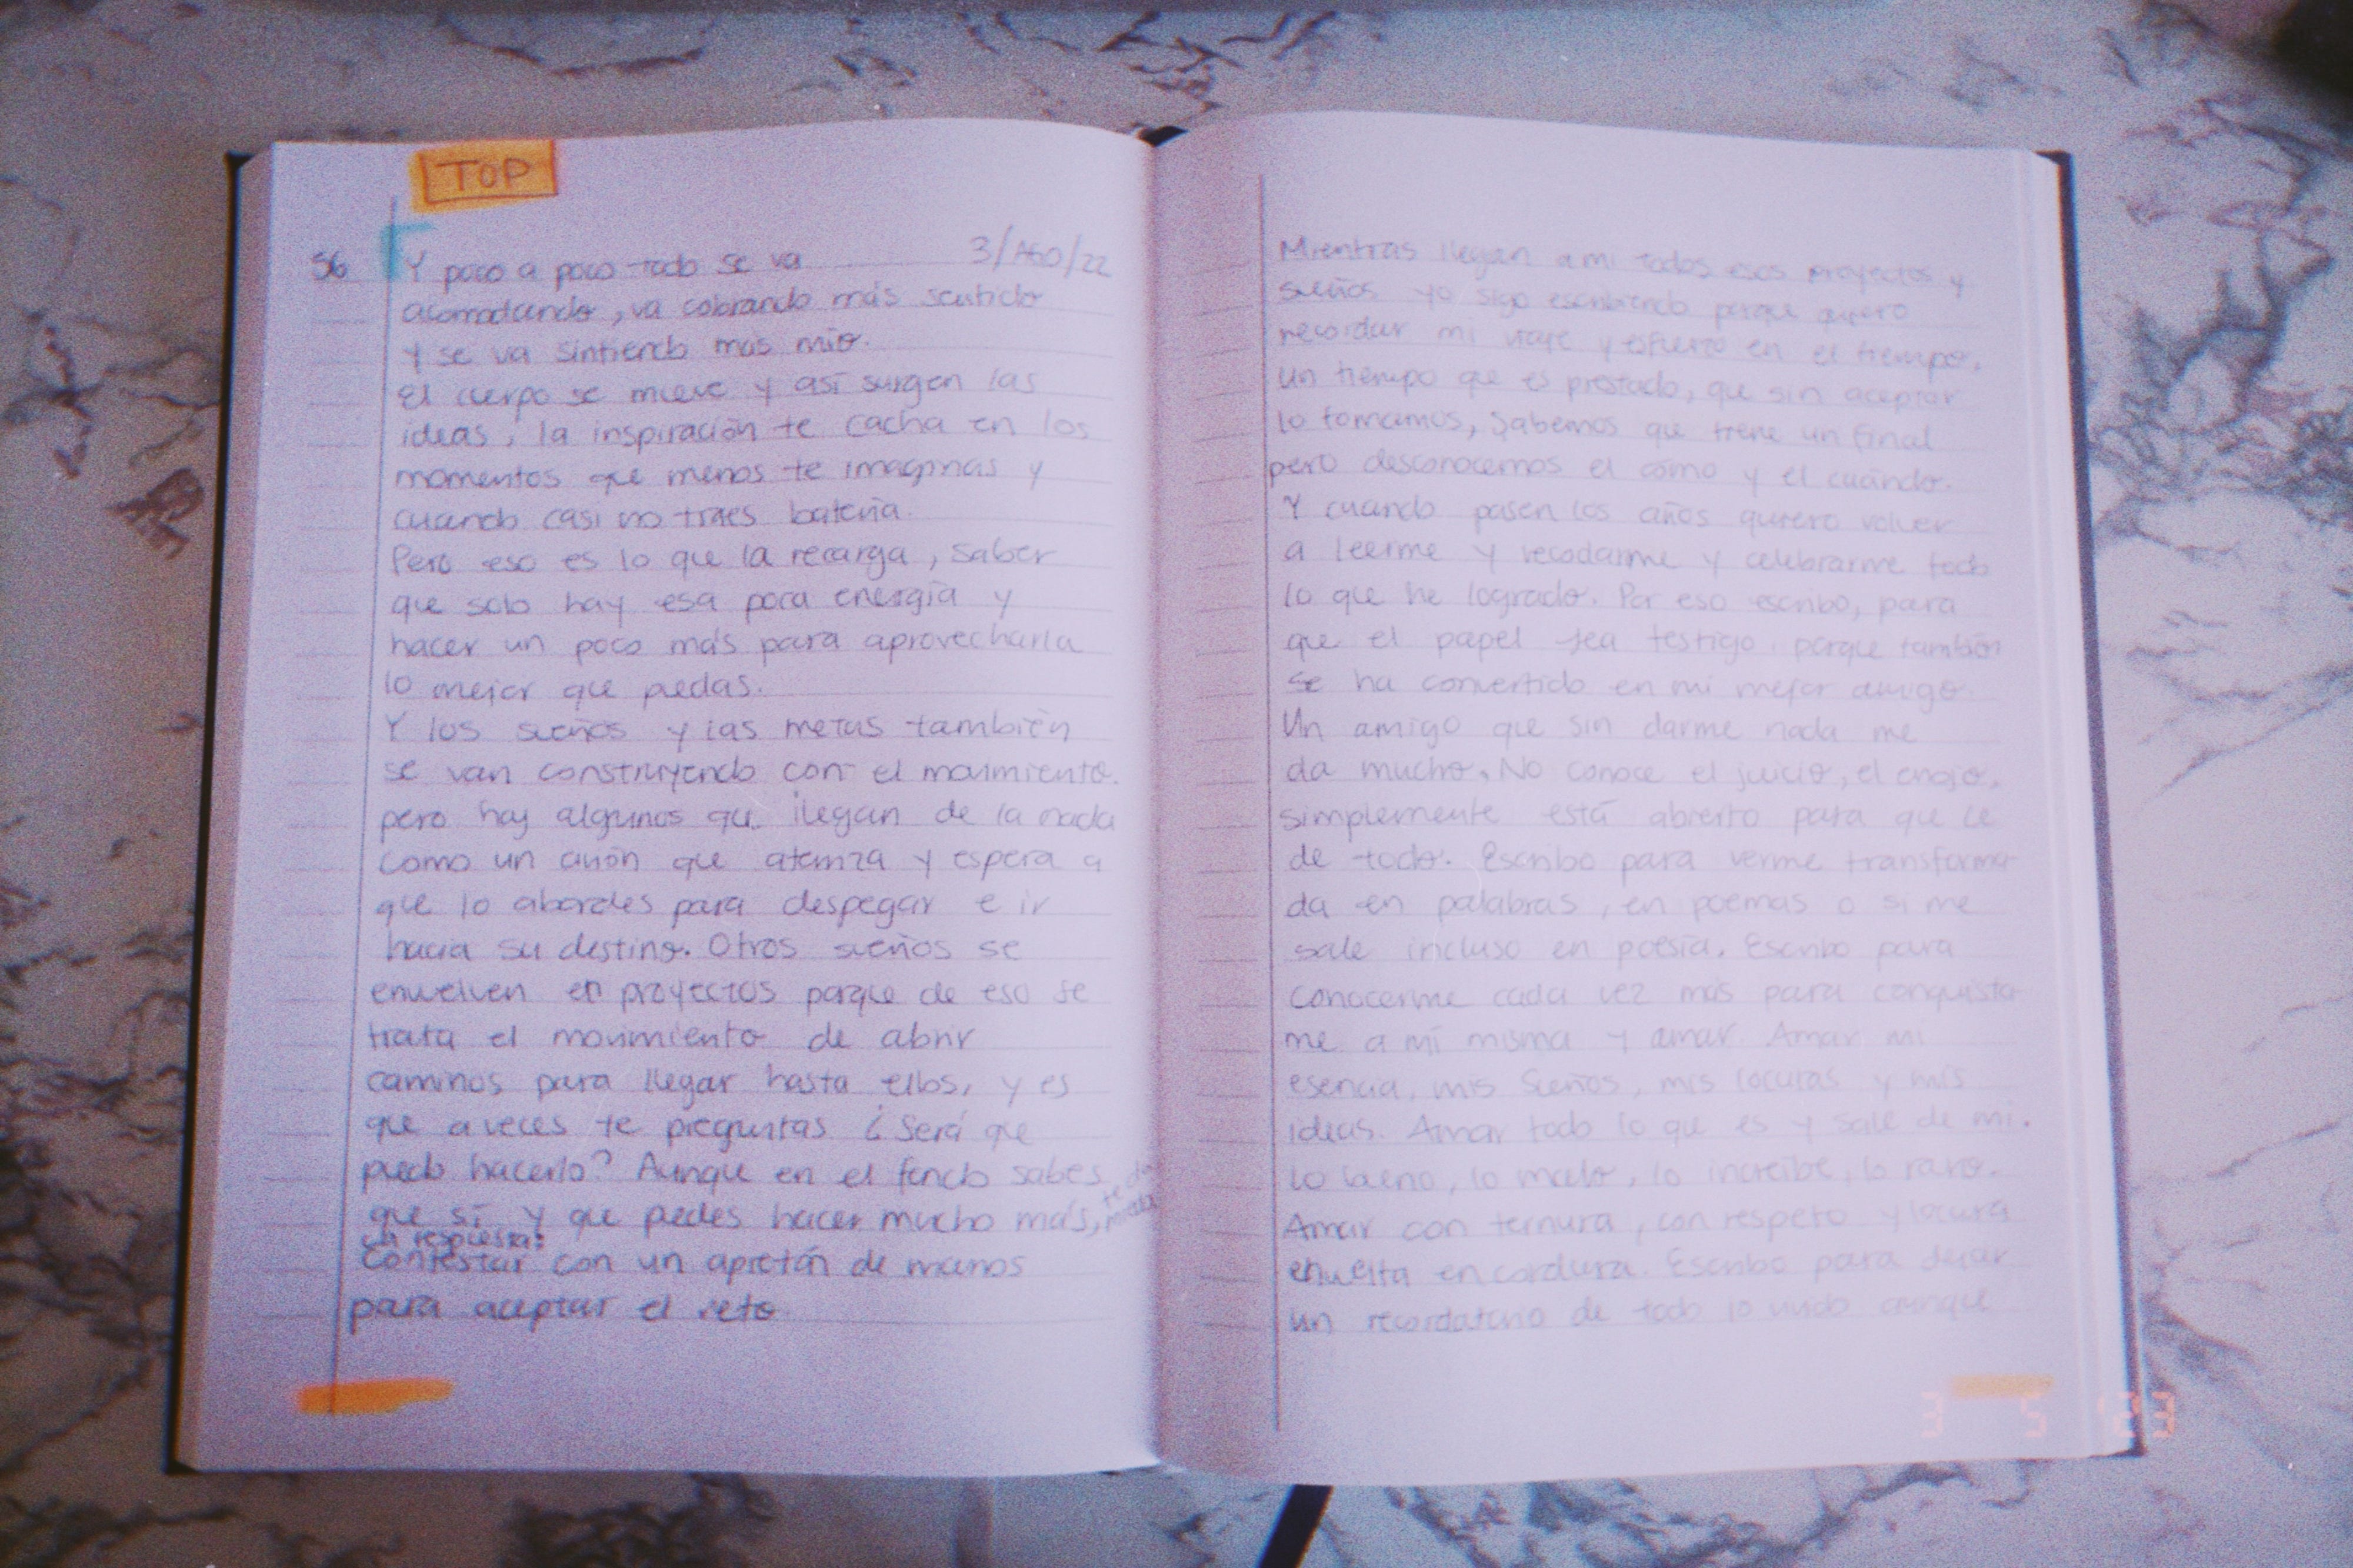 TOP
56 Y poco a poco todo se va 3/AGO/22
acomodando, va cobrando más sentido
y se va sintiendo mas mío.
El cuerpo se mueve y así surgen las
ideas, la inspiración te cacha en los
momentos que menos te imaginas y
cuando casi no traes batería.
Pero eso es lo que la recarga, saber
que solo hay esa poca energía y
hacer un poco más para aprovecharla
lo mejor que puedas.
Y los sueños y las metas también
se van construyendo con el movimiento.
pero hay algunos que llegan de la nada
como un avión que aterriza y espera a
que lo abordes para despegar e ir
hacia su destino. Otros sueños se
envuelven en proyectos porque de eso se
trata el movimiento de abrir
caminos para llegar hasta ellos, y es
que a veces te preguntas ¿Será que
puedo hacerlo? Aunque en el fondo sabes
que sí y que puedes hacer mucho más, te da
la respuesta:
Contestar con un apretón de manos
para aceptar el reto.
Mientras llegan a mi todos esos proyectos y
sueños yo sigo escribiendo porque quiero
recordar mi viaje y esfuerzo en el tiempo,
un tiempo que es prestado, que sin aceptar
lo tomamos, sabemos que tiene un final
pero desconocemos el cómo y el cuándo.
Y cuando pasen los años quiero volver
a leerme y recodarme y celebrarme todo
lo que he logrado. Por eso escribo, para
que el papel sea testigo, porque también
se ha convertido en mi mejor amigo.
Un amigo que sin darme nada me
da mucho. No conoce el juicio, el enojo,
simplemente está abierto para que le
de todo. Escribo para verme transforma-
da en palabras, en poemas o si me
sale incluso en poesía. Escribo para
conocerme cada vez más para conquista-
me a mí misma y amar. Amar mi
esencia, mis sueños, mis locuras y mis
ideas. Amar todo lo que es y sale de mi.
lo bueno, lo malo, lo increíble, lo raro.
Amar con ternura, con respeto y locura
envuelta en cordura. Escribo para dejar
un recordatorio de todo lo vivido aunque
3 5 '23